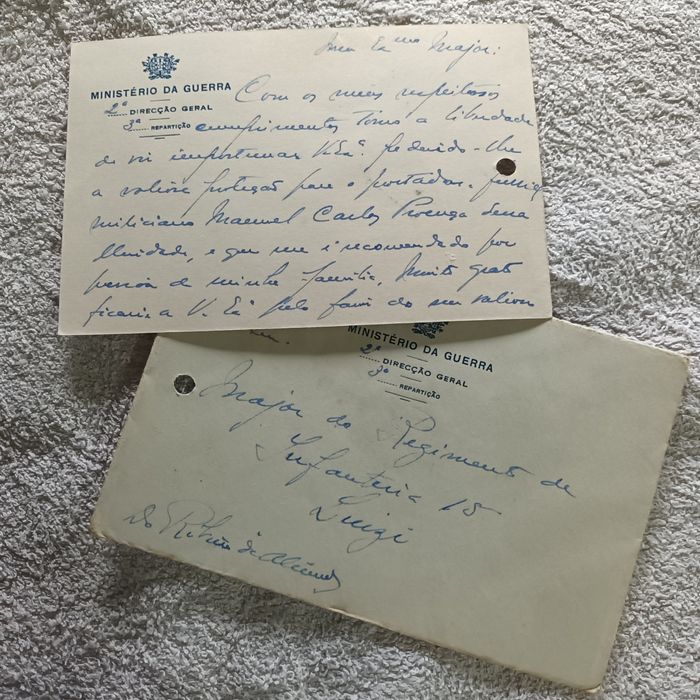 MINISTÉRIO DA GUERRA
2ª DIRECÇÃO GERAL
3ª REPARTIÇÃO
Exmo Major:
Com os meus respeitosos
cumprimentos tomo a liberdade
de vir importunar V. Exª. pedindo-lhe
a valiosa protecção para o portador,
miliciano Manuel Carlos Proença dessa
Unidade, e que me é recomendado por
pessoa de minha família. Muito grato
ficaria a V. Exª pelo favor do seu valioso
MINISTÉRIO DA GUERRA
2ª DIRECÇÃO GERAL
3ª REPARTIÇÃO
Major do Regimento de
Infanteria 15
Do Ribeiro de Almeida